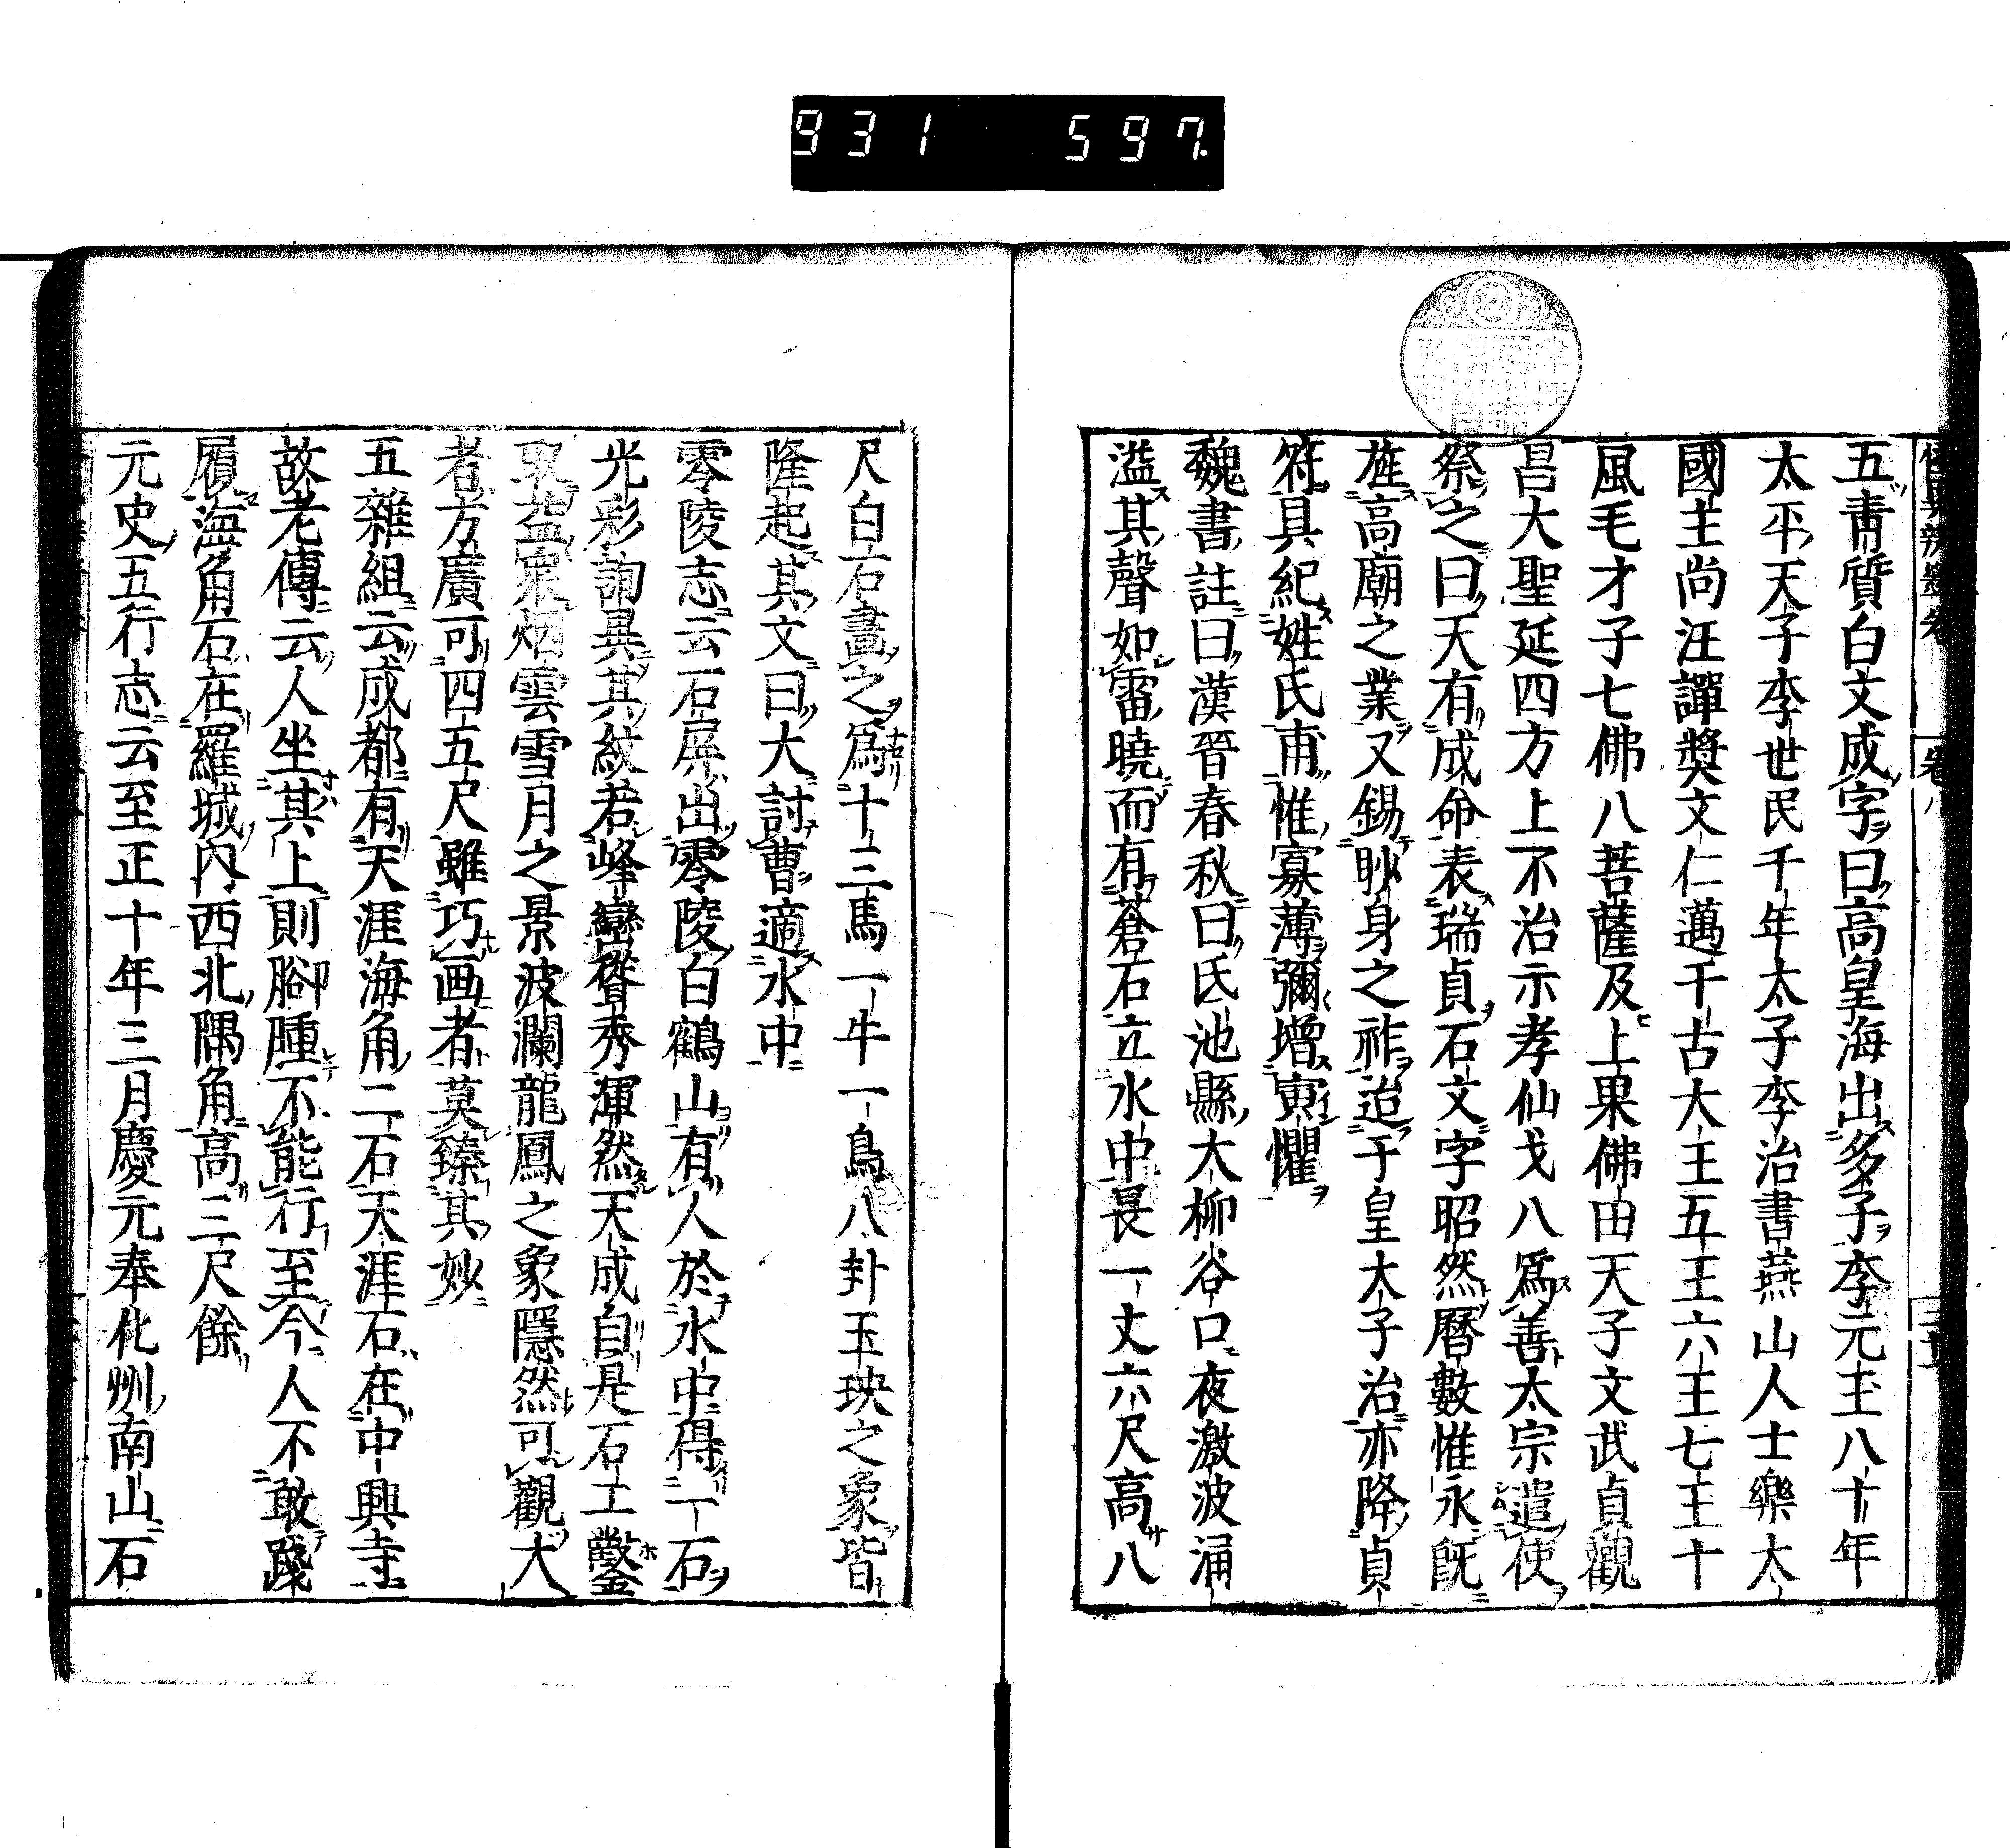 931 597
五青質白文成字曰高皇海出多子李元王八十年
太平天子李世民千年太子李治書燕山人士樂太
國主尚汪譂奬文仁邁千古大王五王六王七王十
風毛才子七佛八菩薩及上果佛田天子文武貞觀
昌大聖延四方上不治示孝仙戈八爲善太宗遣使
祭之曰天有成命表瑞貞石文字昭然曆數惟永旣
旌高廟之業又錫眇身之祚迨于皇太子治亦降貞
符具紀姓氏甫惟寡薄彌增寅懼
魏書註曰漢晉春秋曰氐池縣大柳谷口夜激波涌
溢其聲如雷曉而有蒼石立水中長一丈六尺高八
尺白石畫之爲十三馬一牛一鳥八卦玉玦之象皆
隆起其文曰大討曹適水中
零陵志云石屏出零陵白鶴山有人於水中得一石
光彩詢異其紋若峰巒聳秀渾然天成自是石工鑿
取益衆烟雲雪月之景波瀾龍鳳之象隱然可觀大
者方廣可四五尺雖巧画者莫臻其妙
五雜組云成都有天涯海角二石天涯石在中興寺
故老傳云人坐其上則腳腫不能行至今人不敢踐
履海角石在羅城內西北隅角高三尺餘
元史五行志云至正十年三月慶元奉化州南山石
卷八